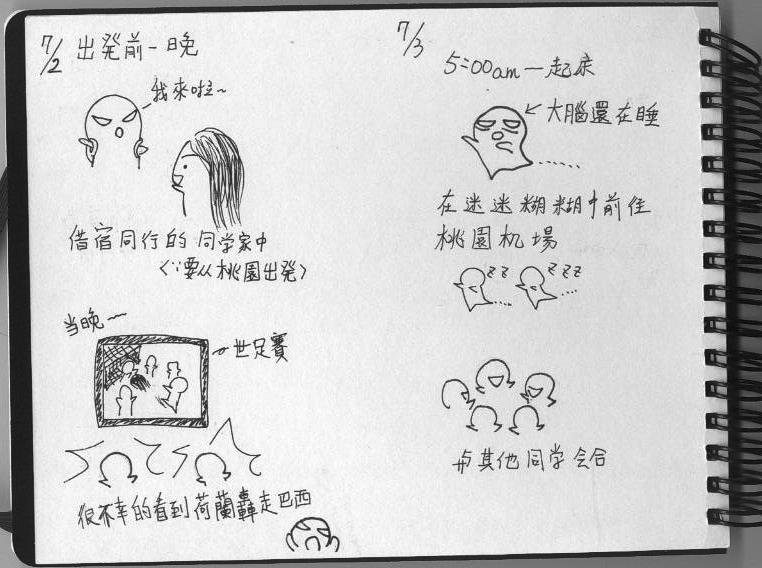 7/2 出発前一晚
我來啦~
借宿同行的同学家中
<∵要从桃園出発>
当晚~
世足賽
很不幸的看到荷蘭轟走巴西
7/3
5:00am 一起床
大腦還在睡
在迷迷糊糊中前往
桃園机場
zz zzz
与其他同学会合